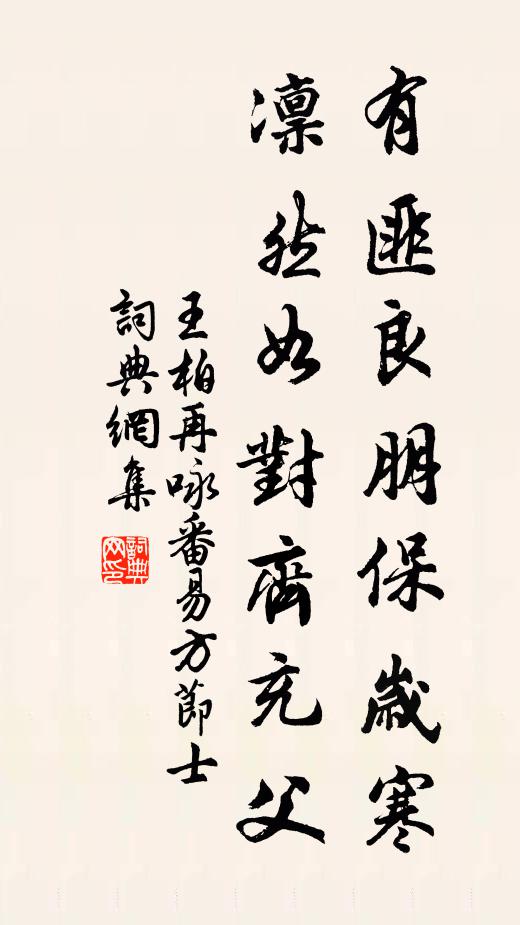 有匪良朋保歲寒
凛然如對齊充父
王柏再咏番易方節士
詞典網集
詞典网印